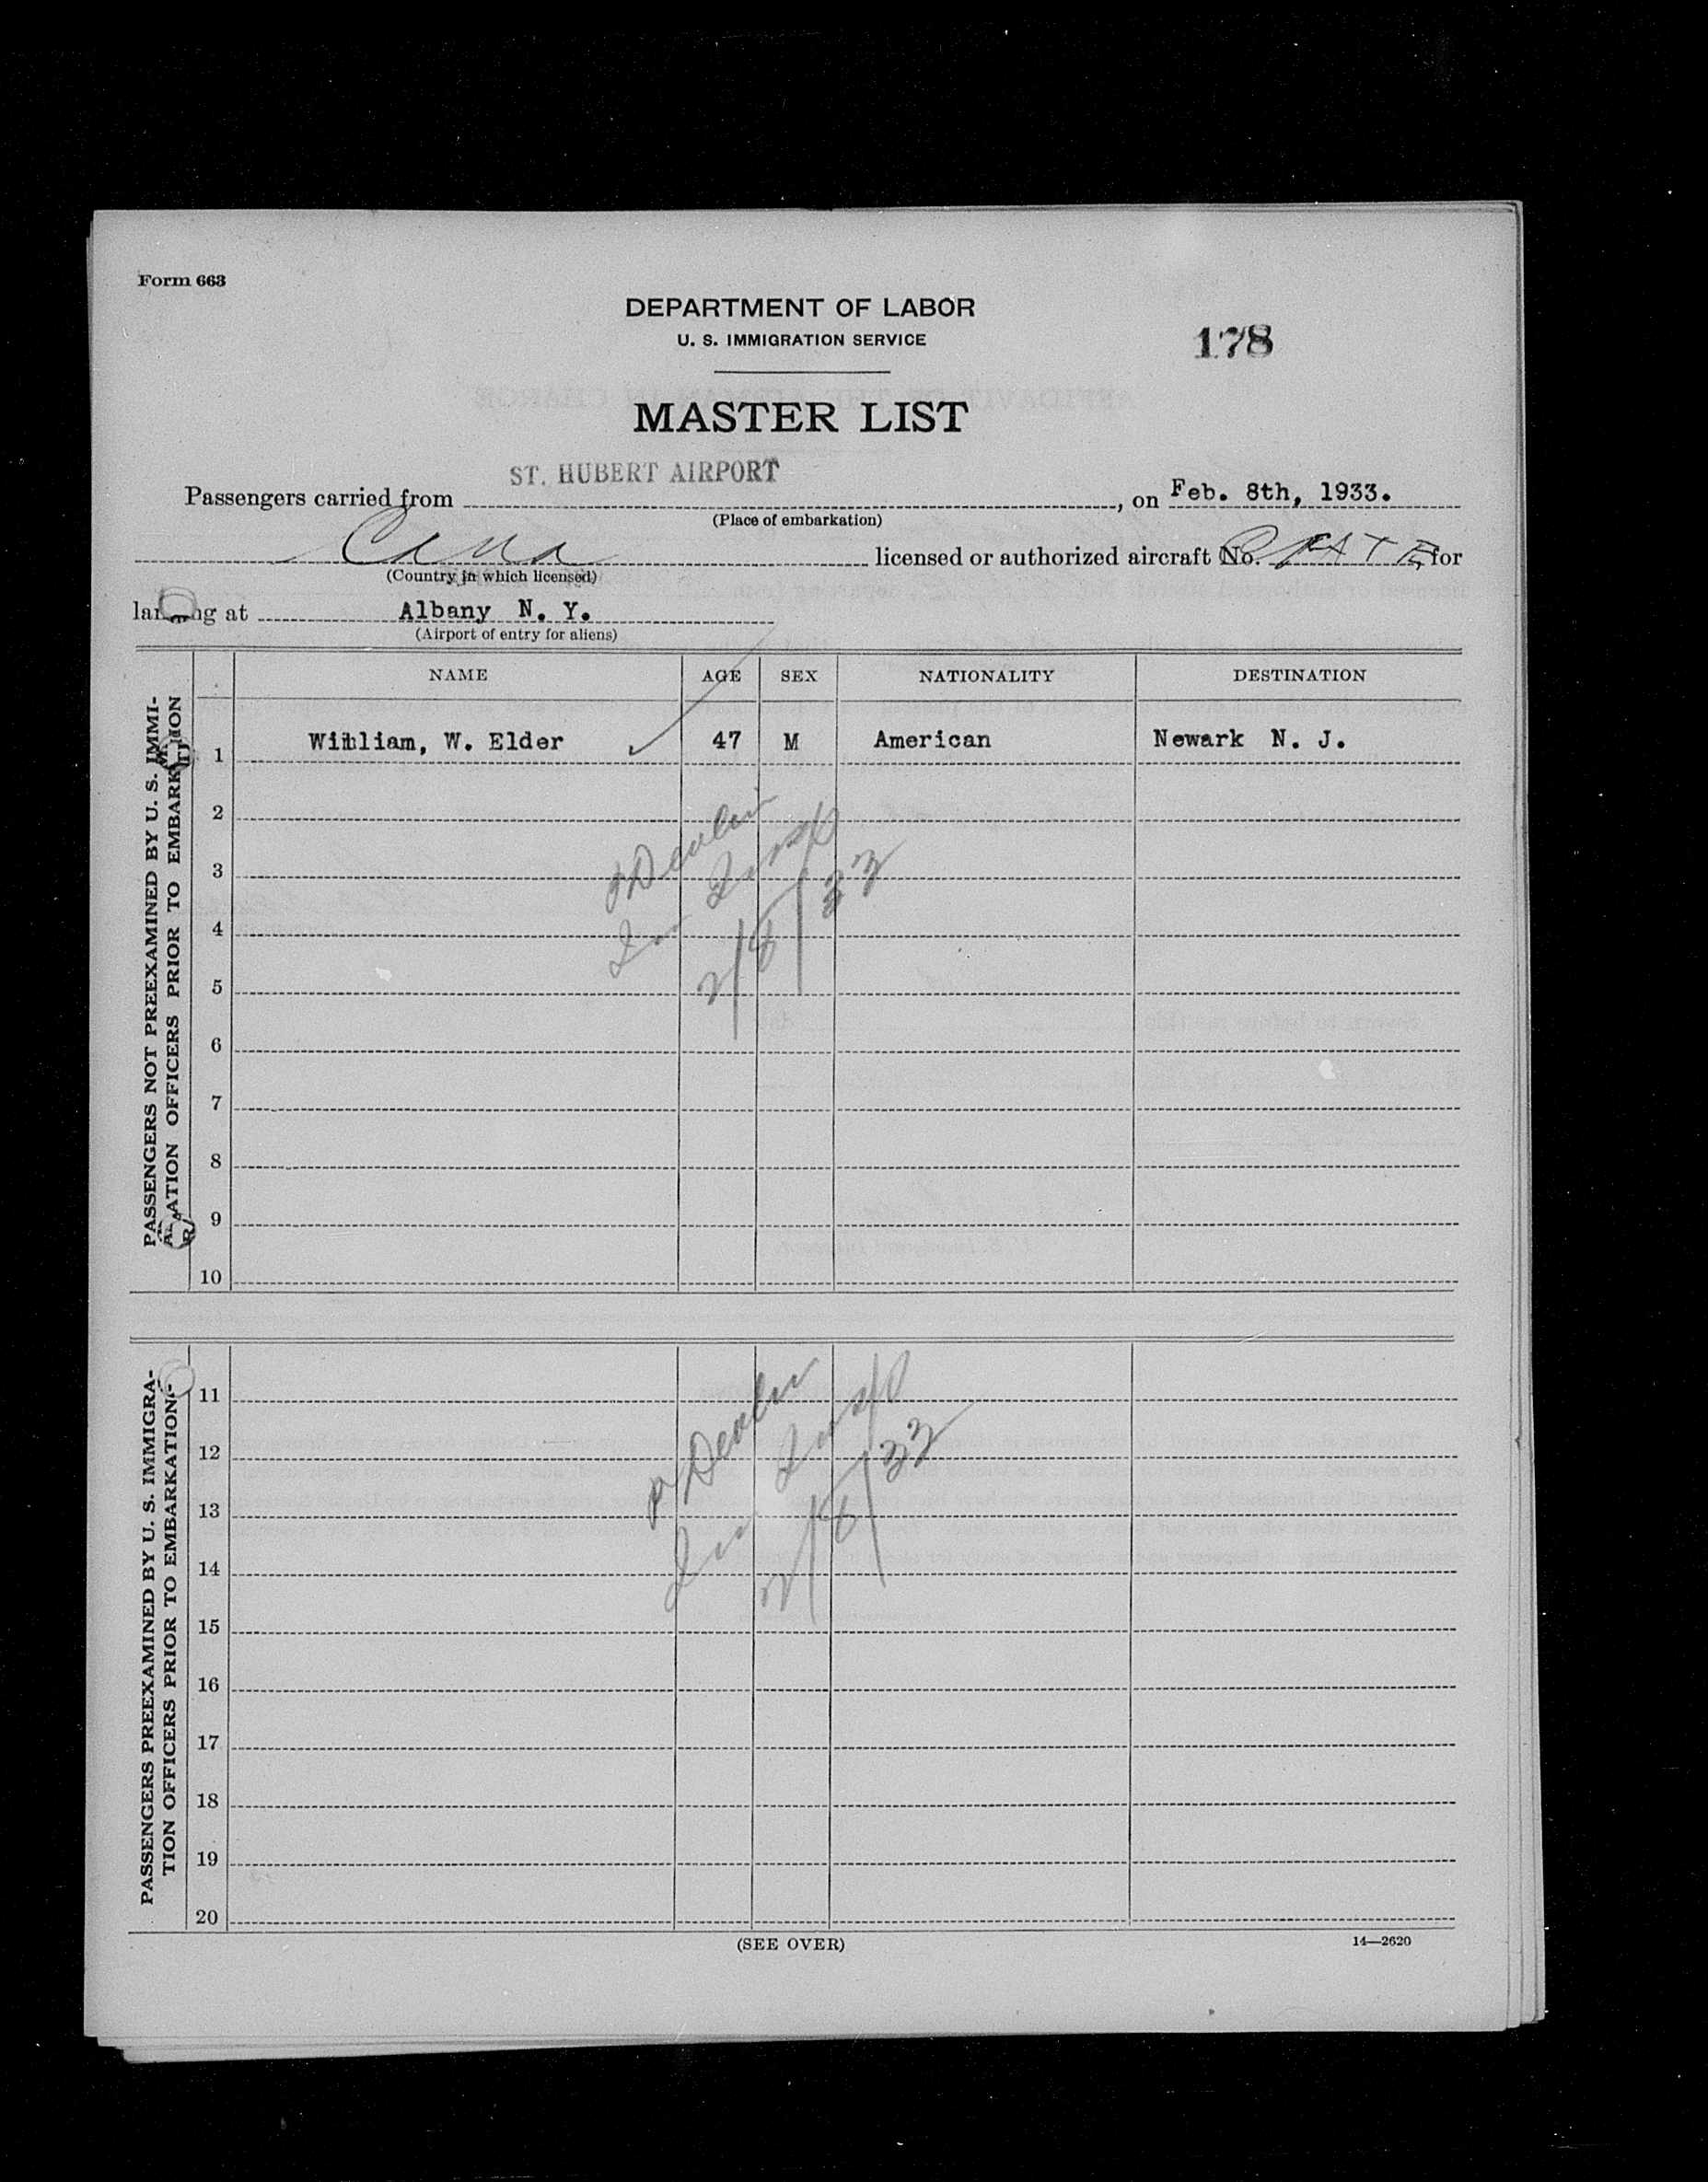 Form 663
DEPARTMENT OF LABOR
U. S. IMMIGRATION SERVICE
178
MASTER LIST
Passengers carried from ST. HUBERT AIRPORT, on Feb. 8th, 1933.
(Place of embarkation)
Cana licensed or authorized aircraft No. for
(Country in which licensed)
landing at Albany N. Y.
(Airport of entry for aliens)
NAME AGE SEX NATIONALITY DESTINATION
PASSENGERS NOT PREEXAMINED BY U. S. IMMI-
GRATION OFFICERS PRIOR TO EMBARKATION
1 William, W. Elder 47 M American Newark N. J.
2
3
4
5
6
7
8
9
10
Devlin
Imm Insp
2/8/33
PASSENGERS PREEXAMINED BY U. S. IMMIGRA-
TION OFFICERS PRIOR TO EMBARKATION
11
12
13
14
15
16
17
18
19
20
Devlin
Imm Insp
2/8/33
(SEE OVER)
14—2620